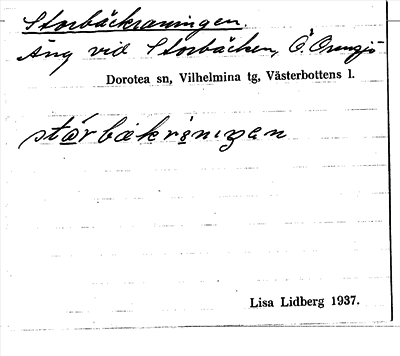 Storbäcksraningen.
Äng vid Storbäcken, Ö. Ormsjö
Dorotea sn, Vilhelmina tg, Västerbottens l.
Lisa Lidberg 1937.